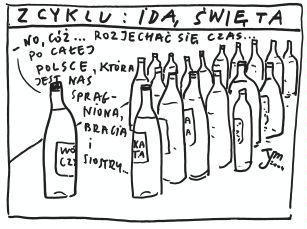 Z CYKLU: IDĄ, ŚWIĘTA
- NO, CÓŻ... ROZJECHAĆ SIĘ CZAS...
PO CAŁEJ
POLSCE, KTÓRA
JEST NAS
SPRĄG-
NIONA,
BRACIA
I
SIOSTRY...
WÓ
CZY
KA
TA
A
A
Tym